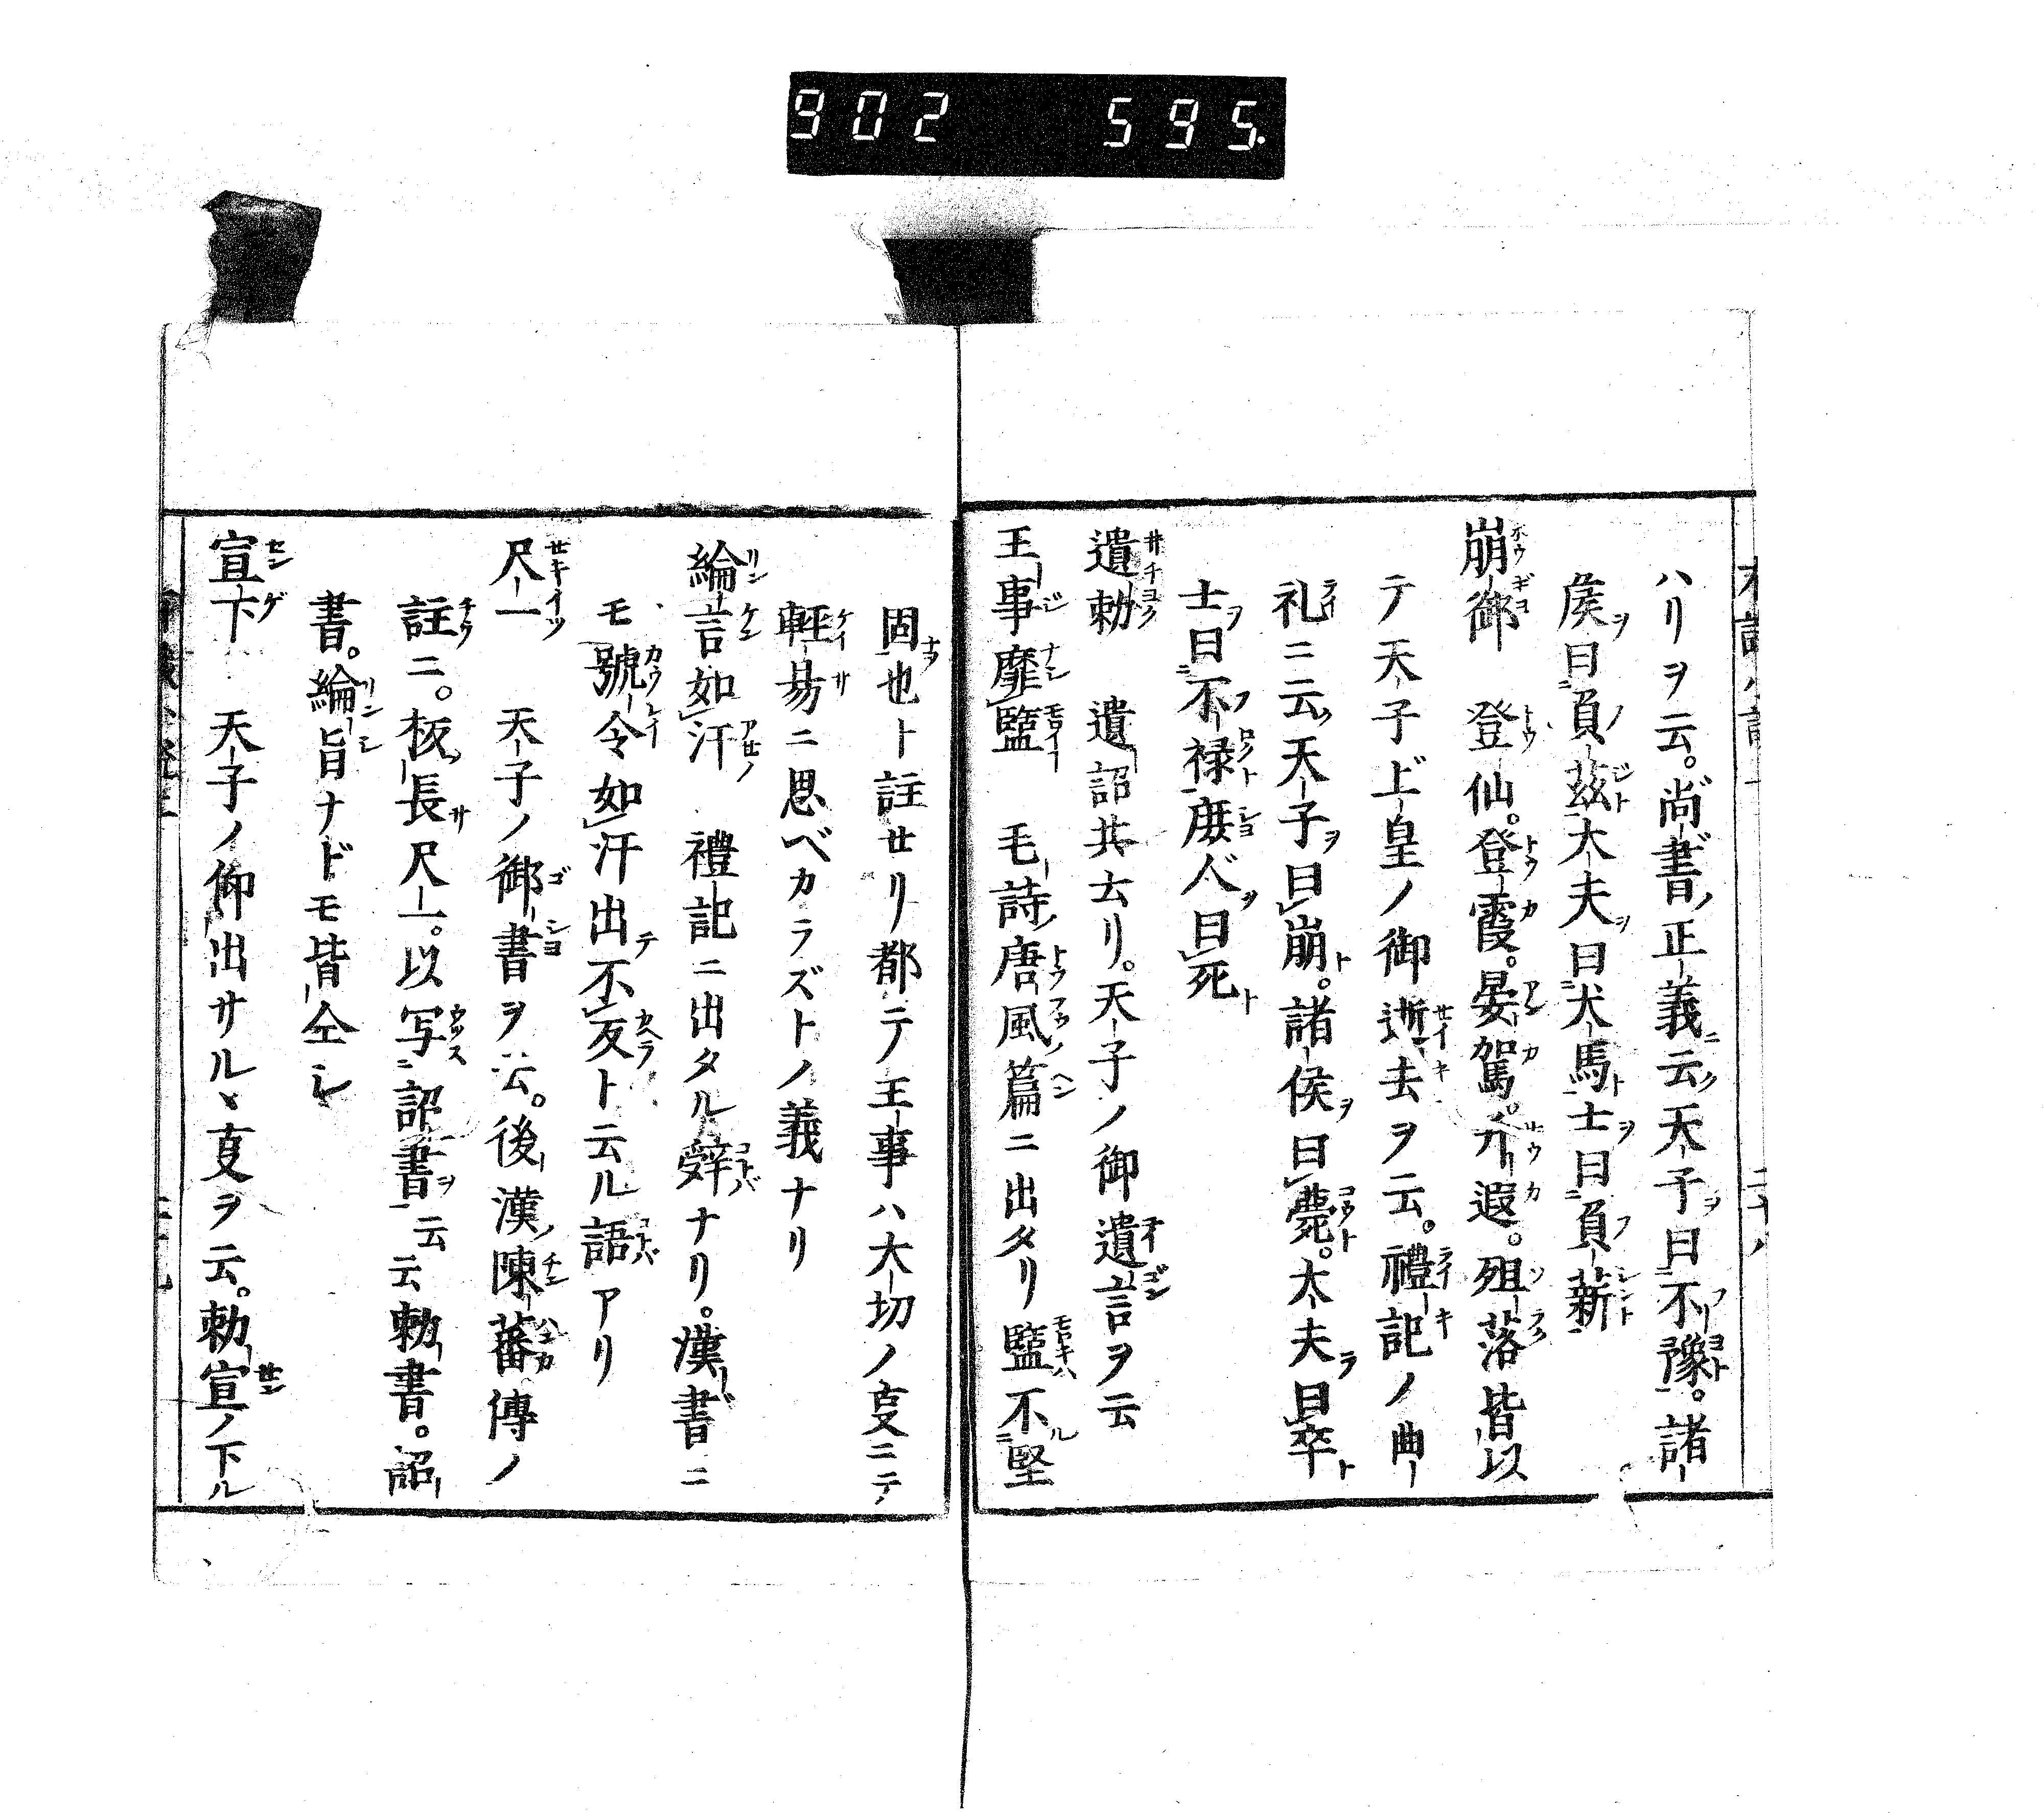 902 595.
ハリヲ云。尚書ノ正義ニ云ク天子ヲ曰不豫ト。諸
侯ヲ曰負茲ト大夫ヲ曰犬馬ト士ヲ曰負薪ト
崩御 登仙。登霞。晏駕。升遐。殂落皆以
テ天子上皇ノ御逝去ヲ云。禮記ノ曲
礼ニ云ク天子ヲ曰崩ト。諸侯ヲ曰薨ト。大夫ヲ曰卒ト
士ヲ曰不禄ト庻人ヲ曰死ト
遺勅 遺詔共云リ。天子ノ御遺言ヲ云
王事靡盬 毛詩ノ唐風ノ篇ニ出タリ盬ハ不ル堅
固ナラ也ト註セリ都テ王事ハ大切ノ支ニテ
軽易ニ思ベカラズトノ義ナリ
綸言如汗 禮記ニ出タル辞ナリ。漢書ニ
モ號令如汗出テ不反ト云ル語アリ
尺一 天子ノ御書ヲ云。後漢ノ陳蕃カ傳ノ
註ニ。板ノ長サ尺一。以写詔書ヲ云云勅書。詔
書。綸旨ナドモ皆仝シ
宣下 天子ノ仰出サルヽ支ヲ云。勅宣ノ下ル